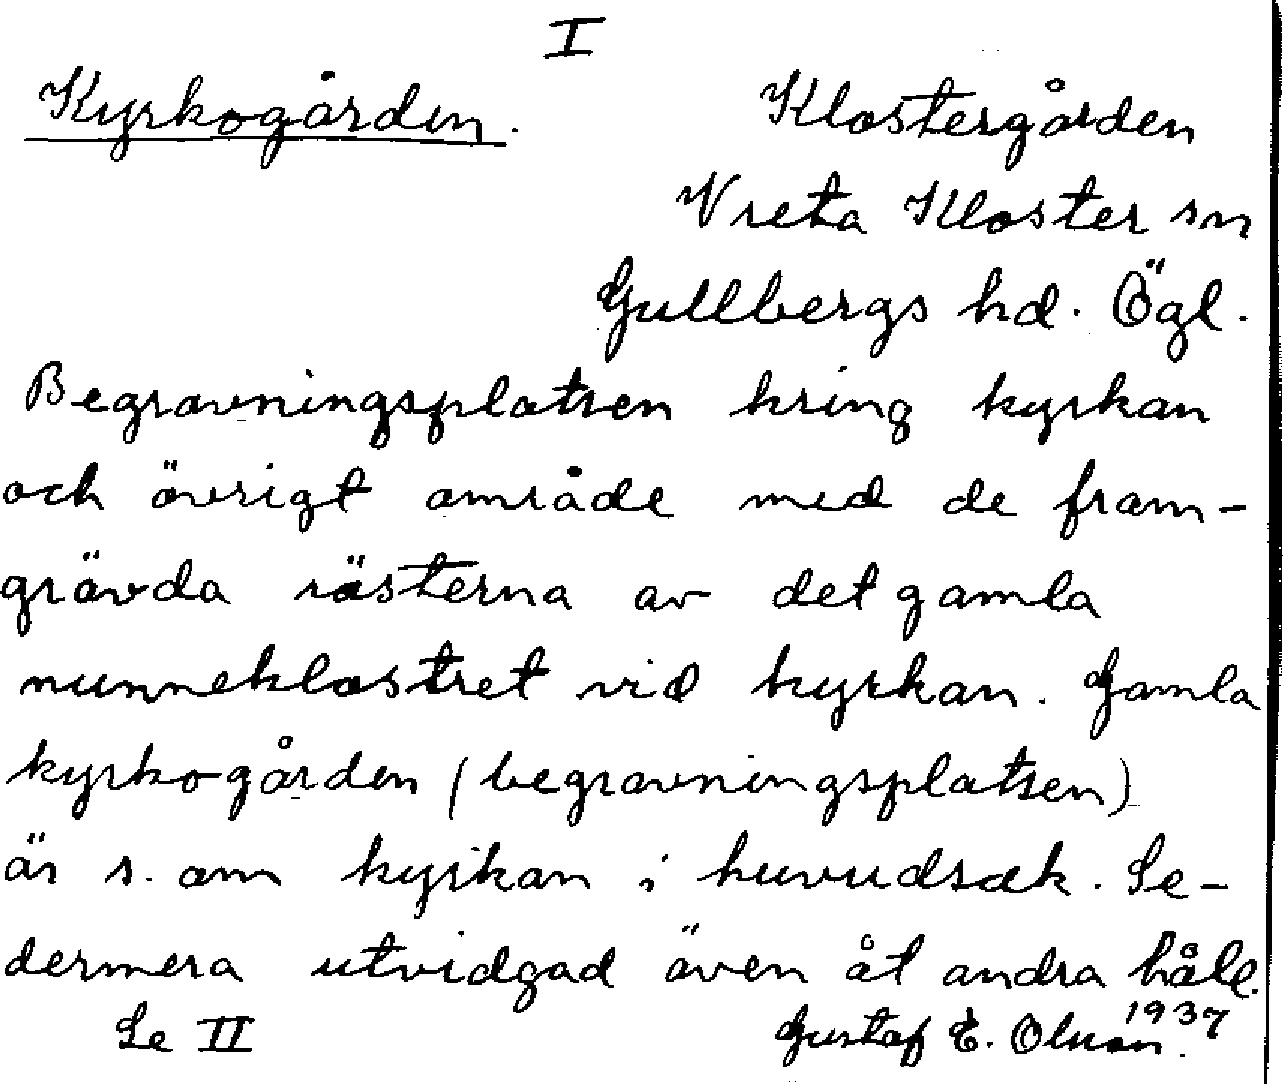 I
Kyrkogården. Klostergården
Vreta Kloster sn
Gullbergs hd. Ögl.
Begravningsplatsen kring kyrkan
och övrigt område med de fram-
grävda rästerna av det gamla
nunneklostret vid kyrkan. Gamla
kyrkogården (begravningsplatsen)
är s. om kyrkan i huvudsak. Se-
dermera utvidgad även åt andra håll.
Se II Gustaf E. Olsson. 1937